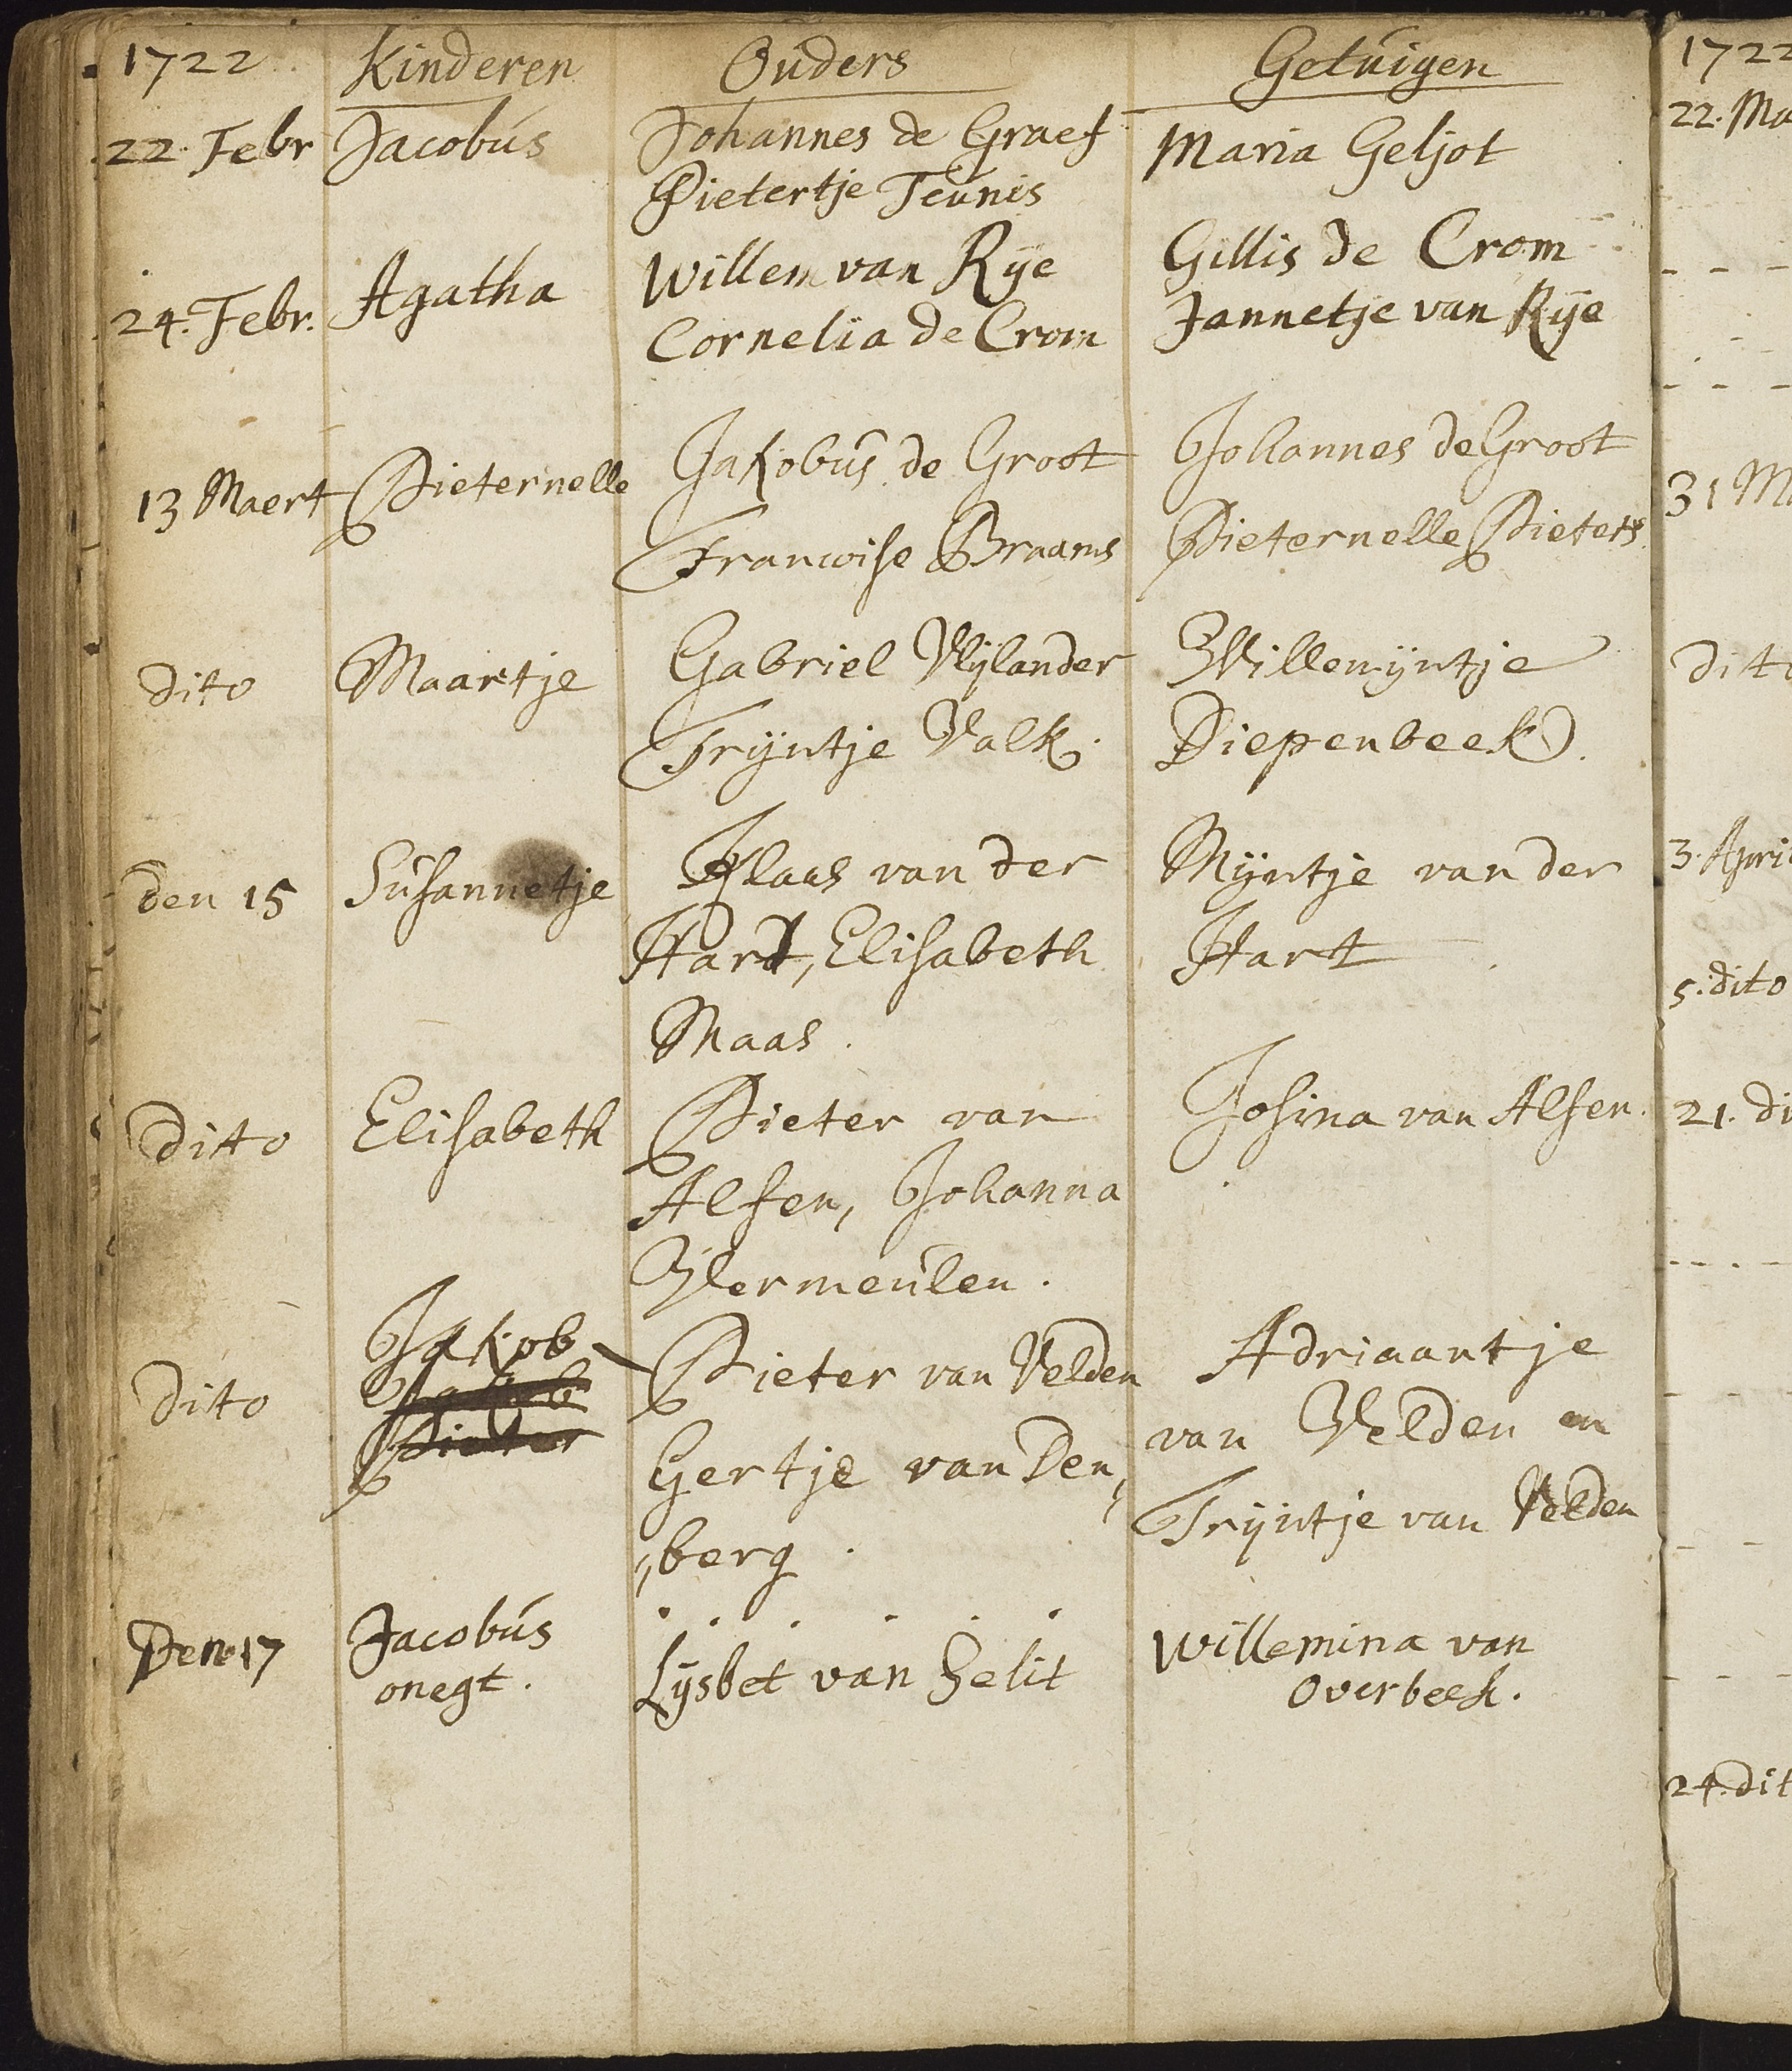 1722 Kinderen Ouders Getuigen
22. Febr Jacobus Johannes de Graef Maria Geljot
Pietertje Teunis
24. Febr. Agatha Willem van Rije Gillis de Crom
Cornelia de Crom Jannetje van Rije
13 Maert Pieternelle Jakobus de Groot Johannes de Groot
Franwise Braams Pieternelle Pieters
dito Maartje Gabriel Vlijlander Willemijntje
Trijntje Valk. Diepenbeek.
den 15 Susannetje Klaas van der Mijntje van der
Hart, Elisabeth Hart
Maas.
dito Elisabeth Pieter van Josina van Alfen.
Alfen, Johanna
Vermeulen.
dito Jakob Pieter van Velden Adriaantje
Jakob
Pieter Gertje van Den, van Velden en
„berg. Trijntje van Velden
Den 17 Jacobus . . . . . . Willemina van
onegt. Lijsbet van Selit Overbeek.
1722
22. Ma
31 M
dito
3. Apri
5. dito
21. di
24. dit